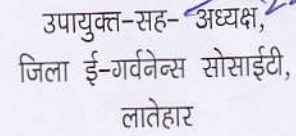 उपायुक्त-सह- अध्यक्ष,
जिला ई-गर्वनेन्स सोसाईटी,
लातेहार